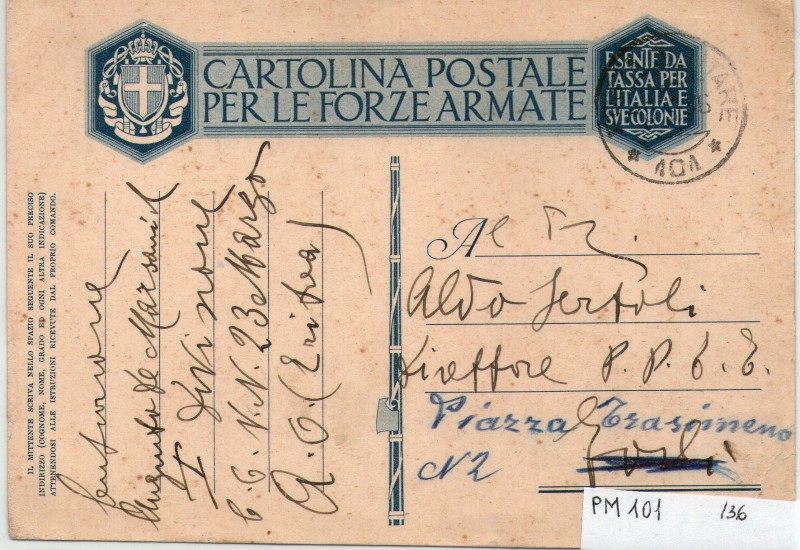 CARTOLINA POSTALE
PER LE FORZE ARMATE
ESENTE DA
TASSA PER
L'ITALIA E
SVE COLONIE
101
IL MITTENTE SCRIVA NELLO SPAZIO SEGUENTE IL SUO PRECISO
INDIRIZZO (COGNOME, NOME, GRADO ED OGNI ALTRA INDICAZIONE)
ATTENENDOSI ALLE ISTRUZIONI RICEVUTE DAL PROPRIO COMANDO.
Centurione
Augusto de Marsanich
I Divisione
C.C. N.N. 23 Marzo
A.O. (Eritrea)
Al
Aldo Sertoli
Direttore P.P. T. T.
Piazza Trasimeno
N 2
PM 101 /36